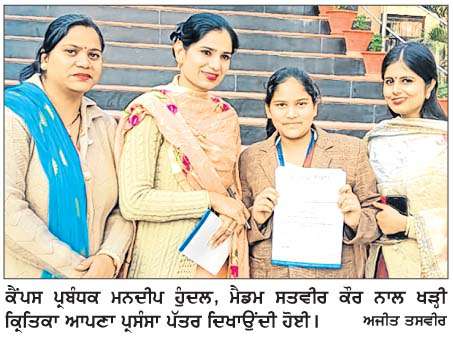 ਕੈਂਪਸ ਪ੍ਰਬੰਧਕ ਮਨਦੀਪ ਹੁੰਦਲ, ਮੈਡਮ ਸਤਵੀਰ ਕੌਰ ਨਾਲ ਖੜ੍ਹੀ
ਕ੍ਰਿਤਿਕਾ ਆਪਣਾ ਪ੍ਰਸੰਸਾ ਪੱਤਰ ਦਿਖਾਉਂਦੀ ਹੋਈ। ਅਜੀਤ ਤਸਵੀਰ